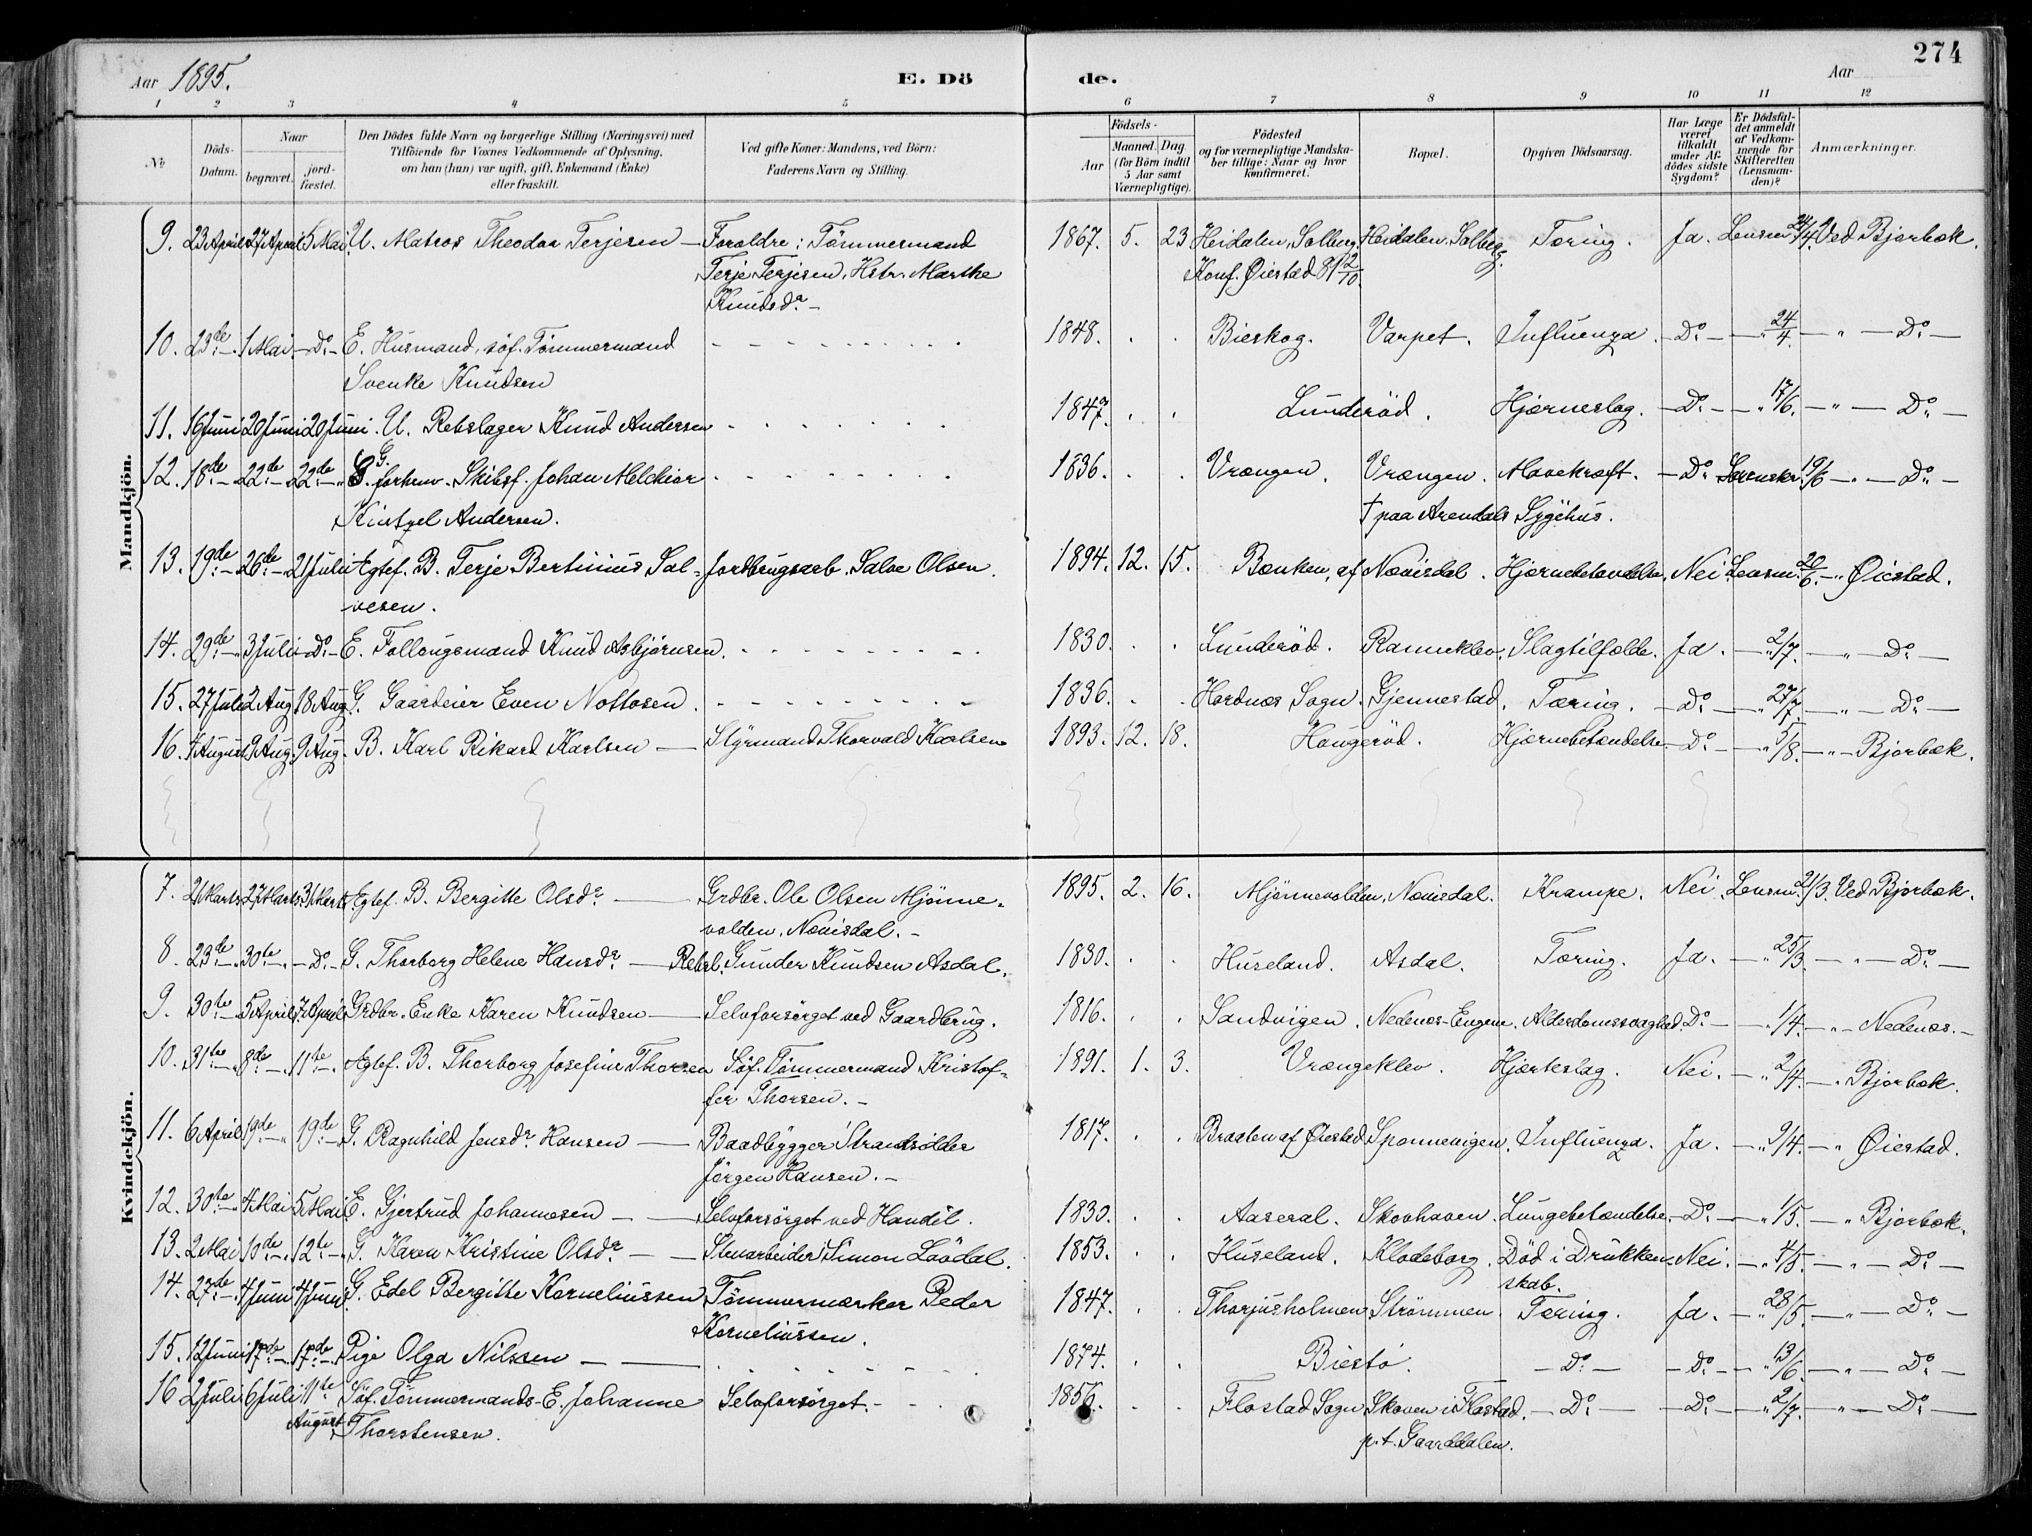 274
Aar 1895. E. Dö de. Aar
1 2 3 4 5 6 7 8 9 10 11 12
№ Döds-Datum. Naar begravet. jord-fæstet. Den Dödes fulde Navn og borgerlige Stilling (Næringsvei) med Tilföiende for Voxnes Vedkommende af Oplysning, om han (hun) var ugift, gift, Enkemand (Enke) eller fraskilt. Ved gifte Koner: Mandens, ved Börn: Faderens Navn og Stilling. Födsels- Aar Maaned. Dag (for Börn indtil 5 Aar samt Værnepligtige). Födested og for værnepligtige Mandskaber tillige: Naar og hvor konfirmeret. Bopæl. Opgiven Dödsaarsag. Har Læge været tilkaldt under Afdödes sidste Sygdom? Er Dödsfaldet anmeldt af Vedkommende for Skifteretten (Lensmanden)? Anmærkninger.
Mandkjön.
9. 23 April 27 April 5 Mai. U. Matros Theodor Terjesen — Foreldre: Tømmermand 1867. 5. 23 Heidalen, Solberg Heidalen, Solberg. Tæring. Ja. Lensm 24/4. Ved Bjorbæk.
Terje Terjesen, Hstr. Marthe Konf. Øiestad 81 2/10.
Knudsd.r —
10. 23de — 1 Mai. — Do — E. Husmand, søf. Tømmermand 1848. Bieskog. Varpet. Influenza. — Do — — " 24/4 — " — Do —
Svenke Knudsen
11. 16 Juni 20 Juni 20 Juni. U. Rebslager Knud Andersen 1847. Lunderød. Hjerneslag. — Do — — " 17/6. — " — Do —
12. 18de — 22de — 22de — " G. forhenv. Skibsf. Johan Melchior 1836. Vrængen. Vrængen. Mavekræft. — Do 19/6 — " — Do —
Kintzel Andersen. † paa Arendals Sygehus.
13. 19de — 26de — 21 Juli Ægtef. B. Terje Bertinius Sal- Jordbrugsarb. Salve Olsen. 1894. 12. 15. Bænken, af Nævisdal. Hjernebetændelse, Nei Lensm. 20/6. — " Øiestad.
vesen.
14. 29de — " 3 Juli — Do — E. Follougsmand Knud Asbjørnsen. 1830. Lunderød. Ranneklev. Slagtilfælde. Ja. — " 2/7. — " — Do —
15. 27 Juli 2 Aug 18 Aug. G. Gaardeier Even Nottosen. 1836. Hordnes Sogn. Gjennestad. Tæring. — Do — — " 27/7 — " — Do —
16. 4 August 9 Aug 9 Aug. B. Karl Rikard Karlsen — Styrmand Thorvald Karlsen 1893. 12. 18. Haugerød. Hjernebetændelse. — Do — — " 5/8. — " — Bjorbæk.
Kvindekjön.
7. 21 Marts 27 Marts 31 Marts Ægtef. B. Bergitte Olsd.r — Grdbr. Ole Olsen Mjønne- 1895. 2. 16. Mjønnevolden, Nævisdal. Krampe. Nei. Lensm. 21/3. Ved Bjorbæk.
volden, Nævisdal. —
8. 23de — " 30te — " — Do — G. Thorborg Helene Hansd.r — Rebsl. Gunder Knudsen Asdal. 1830. Huseland. Asdal. Tæring. Ja. — " 25/3. — " — Do —
9. 30te — " 5 April 7 April Grdbr. Enke Karen Knudsen — Selvforsørget ved Gaardbrug. 1816. Sandvigen. Nedenes-Engene. Alderdomssvaghed Do — — " 1/4. — " Nedenes. —
10. 31te — " 8de — " 11te — " Ægtef. B. Thorborg Josefine Thorsen Søf. Tømmermand Kristof- 1891. 1. 3. Vrængeklev. Hjerteslag. Nei. — " 2/4. — " Bjorbæk.
fer Thorsen. —
11. 6 April 19de — " 19de — " G. Ragnhild Jensd.r Hansen — Baadbygger Strandsidder 1817. Braaten af Øiestad. Sponnevigen. Influenza. Ja. — " 9/4. — " Øiestad.
Jørgen Hansen. —
12. 30te — " 4 Mai 5 Mai E. Gjertrud Johannesen — — Selvforsørget ved Handel. 1830. Aaseral. Skovhaven. Lungebetændelse. — Do — — " 1/5. — " Bjorbæk.
13. 2 Mai 10de — " 12te — " G. Karen Kristine Olsd.r — — Stenarbeider Simon Lødal. 1853. Huseland. Klodeborg. Død i Drukken- Nei. — " 4/5. — " — Do —
skab.
14. 27de — " 4 Juni 4 Juni G. Edel Bergitte Korneliussen Tømmermærker Peder 1847. Thorjusholmen Strømmen. Tæring. Ja. — " 28/5. — " — Do —
Korneliussen.
15. 12 Juni 17de — " 17de — " Pige Olga Nilssen — — 1874. Biestø. — Do — — Do — — " 13/6. — " — Do —
16 2 Juli 6 Juli 11te Søf. Tømmermands-E. Johanne Selvforsørget. — 1856. Flostad Sogn Skoven i Flostad. — Do — — Do — — " 2/7. — " — Do —
August. Thorstensen. p.t. Gaarddalen.